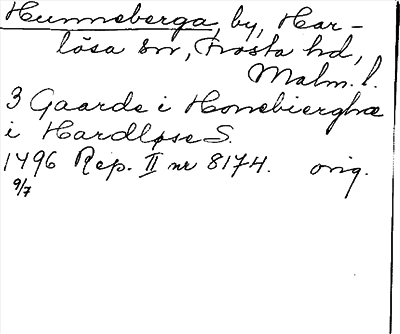 Hunneberga, by, Har-
lösa sn, Frosta hd,
Malm. l.
3 Gaarde i Honnebierghæ
i Hardløse S.
1496 Rep. II nr 8174. orig.
9/7